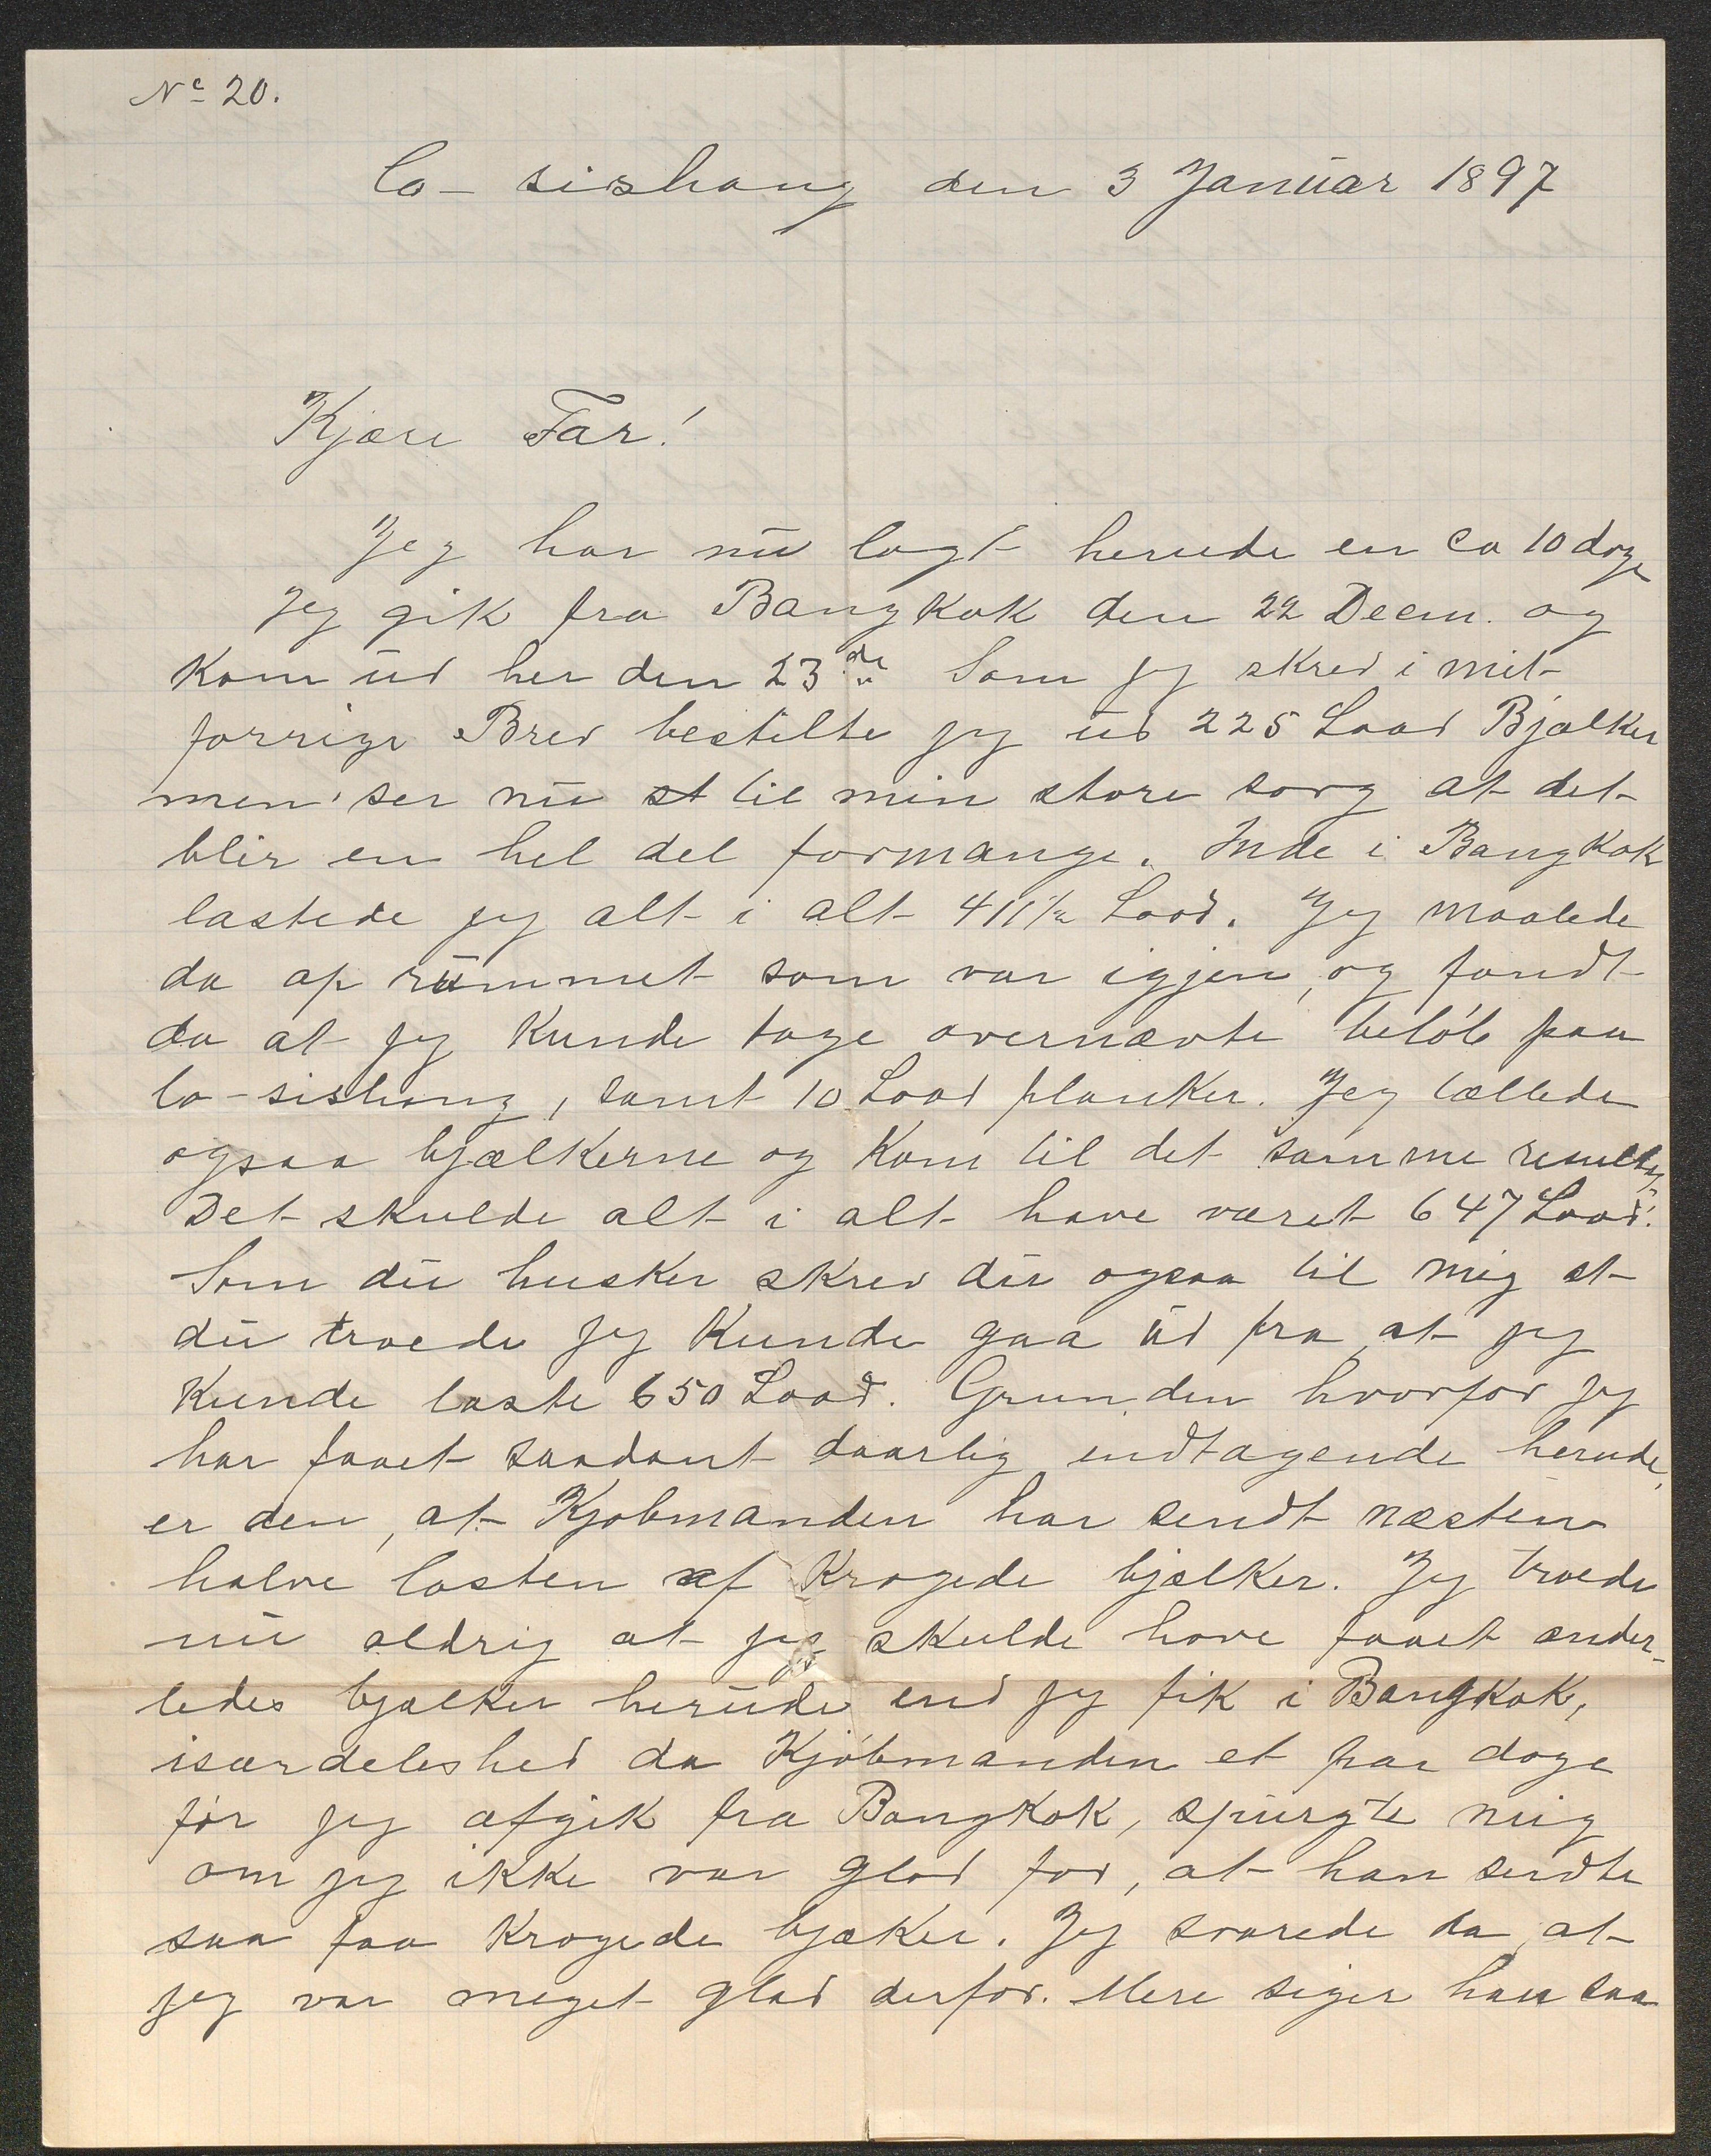 No 20.
Co-sishang den 3 Januar 1897
Kjære Far!
Jeg har nu lagt herude en Ca 10 dage
Jeg gik fra Bangkok den 22 Decm. og
kom ud her den 23de Som jeg skrev i mit
forrige Brev bestilte jeg ud 225 Load Bjælker
men ser nu at til min store sorg at det
blir en hel del formange. Inde i Bangkok
lastede jeg alt i alt 411 1/2 Load. Jeg maalede
da op rummet som var igjen, og fandt
da at jeg kunde tage overnævte beløb paa
Co-sishang, samt 10 Load planker. Jeg tællede
ogsaa bjælkerne og kom til det samme resultat,
Det skulde alt i alt have været 647 Load.
Som du husker skrev du ogsaa til mig at
du troede jeg kunde gaa ud fra at jeg
kunde laste 650 Load. Grunden hvorfor jeg
har faaet saadant daarlig indtagende herude,
er den, at Kjøbmanden har sendt næsten
halve lasten af krogede bjælker. Jeg troede
nu aldrig at jeg skulde have faaet ander-
ledes bjælker herude end jeg fik i Bangkok,
isærdeleshed da Kjøbmanden et par dage
før jeg afgik fra Bangkok, spurgte mig
om jeg ikke var glad for, at han sendte
saa faa krogede bjæker. Jeg svarede da, at
jeg var meget glad derfor. Mere siger han saa